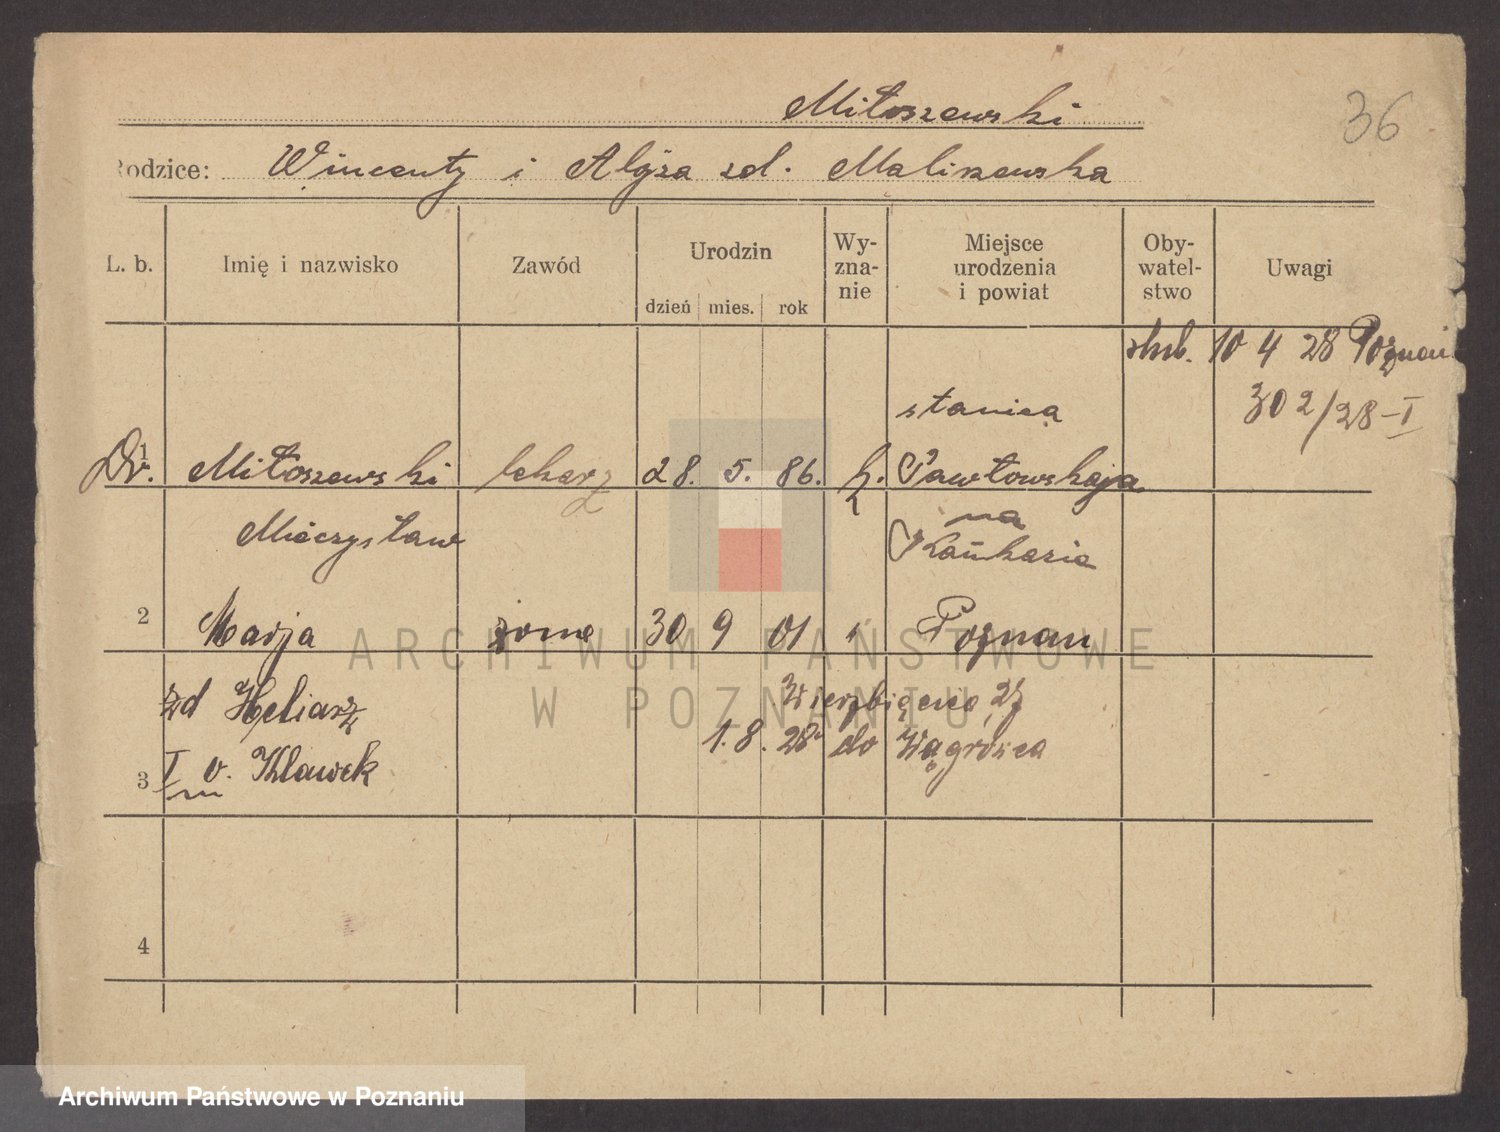 Miłoszewski
36
Rodzice: Wincenty i Alojza zd. Maliszewska
L. b. Imię i nazwisko Zawód Urodzin dzień mies. rok Wy-zna-nie Miejsce urodzenia i powiat Oby-watel-stwo Uwagi
ślub. 10 4 28 Poznań
302/28-I
stanica
1 Dr. Miłoszewski lekarz 28. 5. 86. k. Pawłowskaja
na
Mieczysław Kaukazie
2 Marja żona 30 9 01 " Poznań
zd Heliasz Wierzbięcice 27
1.8.28 do Wągrowca
3 I v. Klawek
4
ARCHIWUM PAŃSTWOWE
W POZNANIU
Archiwum Państwowe w Poznaniu